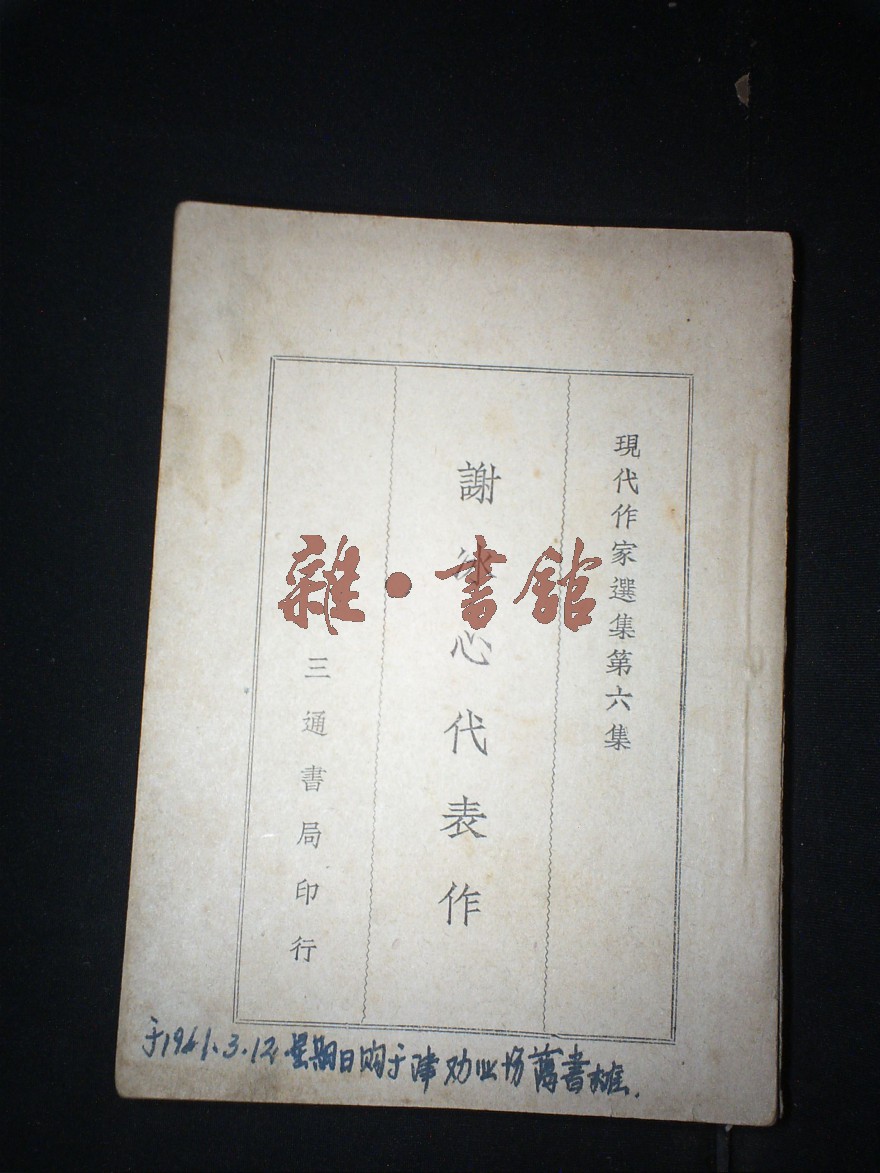 現代作家選集第六集
謝冰心代表作
三通書局印行
雜•書館
于1961.3.12.星期日购于津劝业场舊書摊.